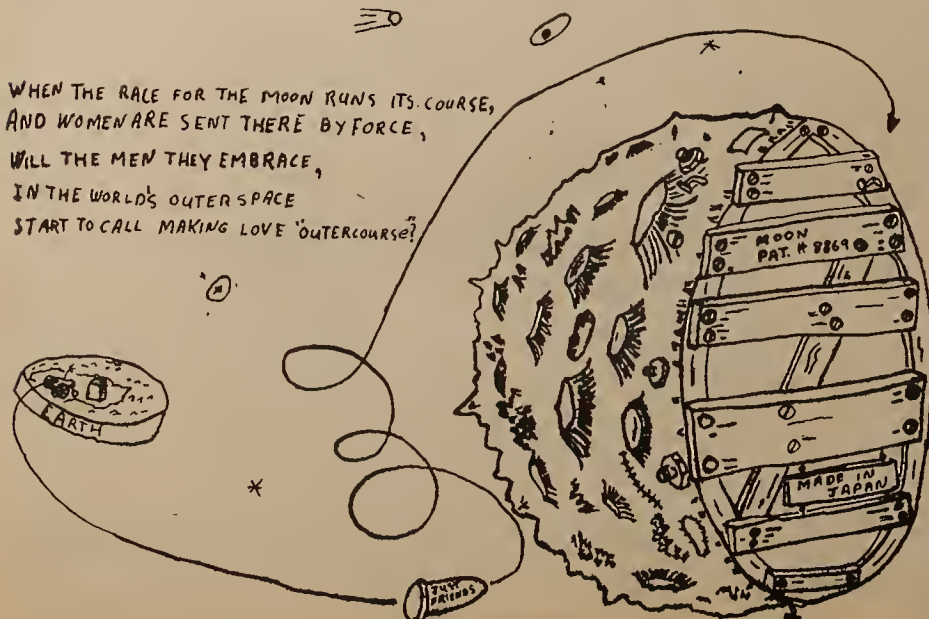 WHEN THE RACE FOR THE MOON RUNS ITS COURSE,
AND WOMEN ARE SENT THERE BY FORCE,
WILL THE MEN THEY EMBRACE,
IN THE WORLD'S OUTERSPACE
START TO CALL MAKING LOVE "OUTERCOURSE?"
MOON
PAT. # 8869
EARTH
MADE IN
JAPAN
JUST
FRIENDS